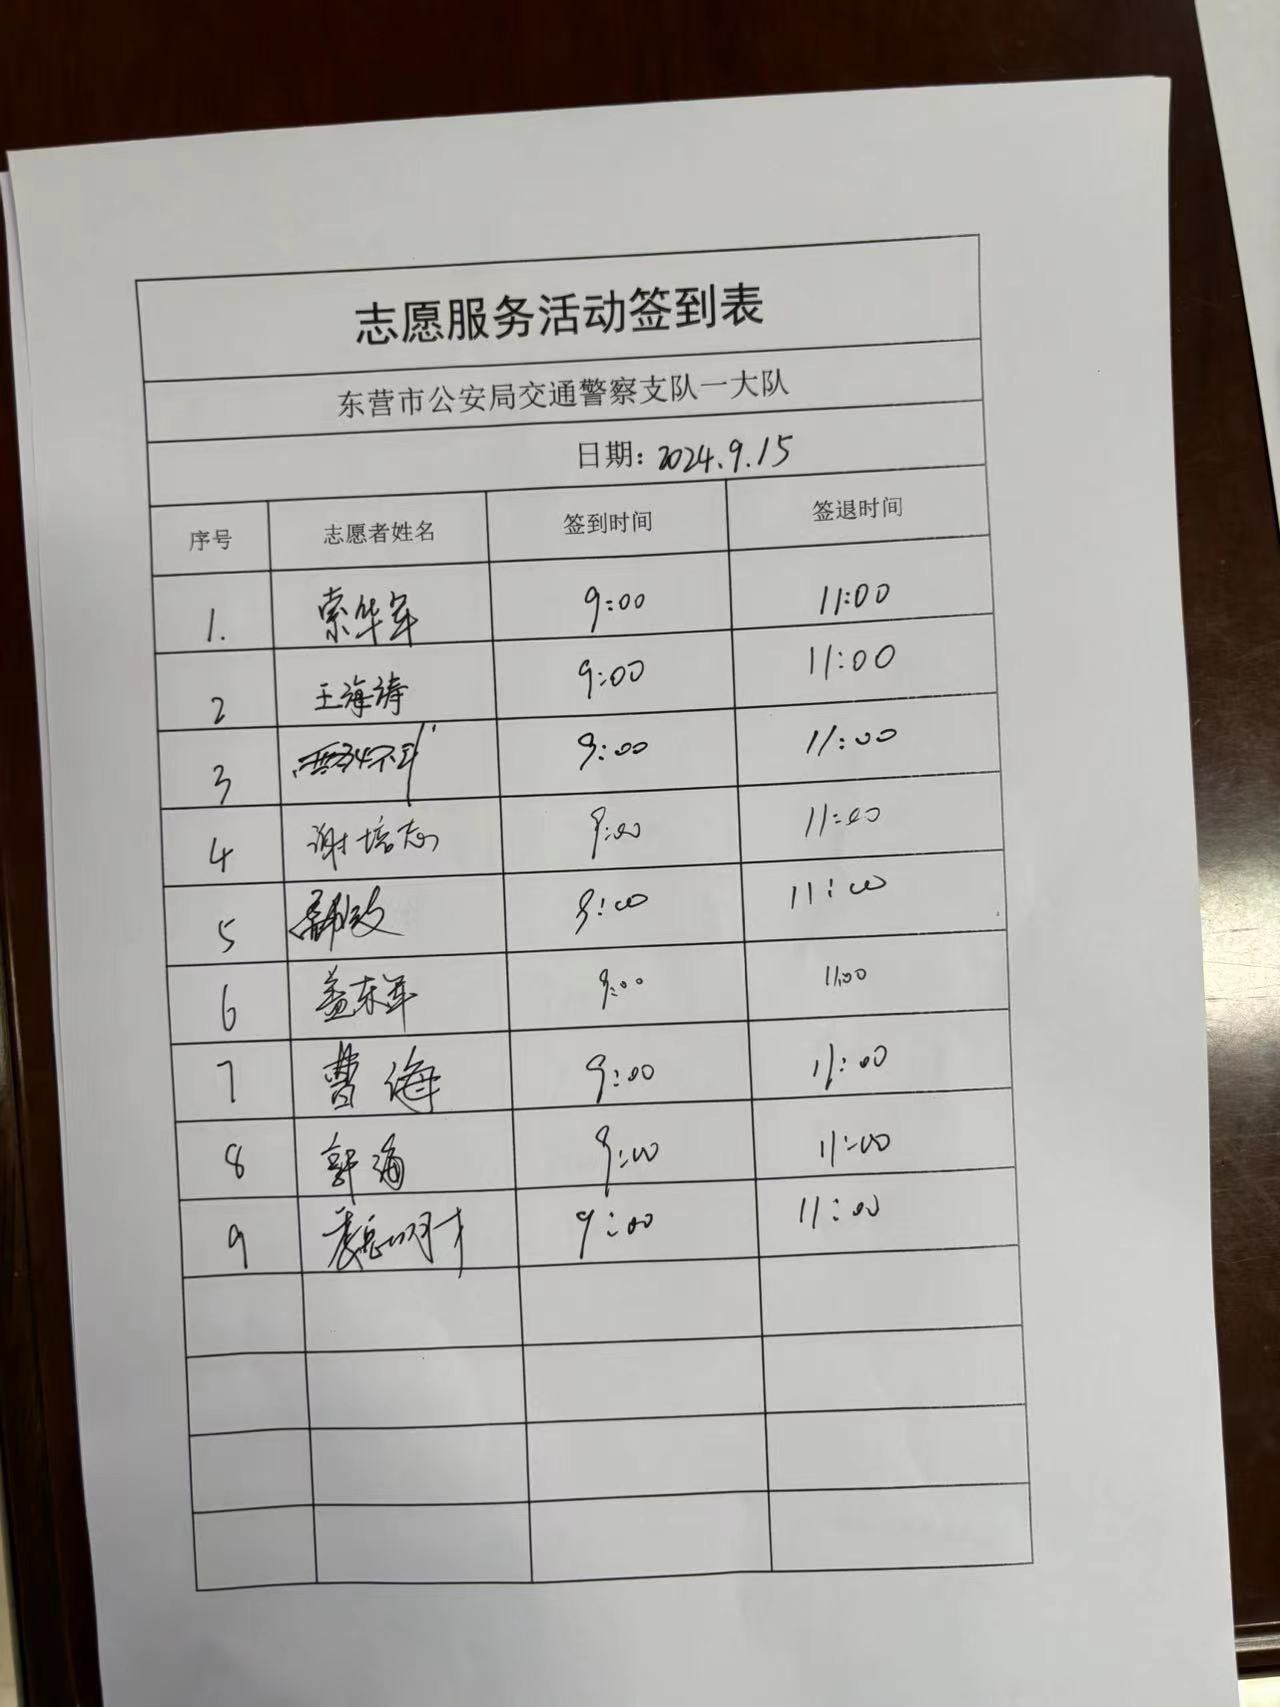 志愿服务活动签到表
东营市公安局交通警察支队一大队
日期：2024.9.15
序号 志愿者姓名 签到时间 签退时间
1. 索华军 9:00 11:00
2 王海涛 9:00 11:00
3 9:00 11:00
4 谢培志 9:00 11:00
5 9:00 11:00
6 盖东军 9:00 11:00
7 曹海 9:00 11:00
8 郭海 9:00 11:00
9 9:00 11:00